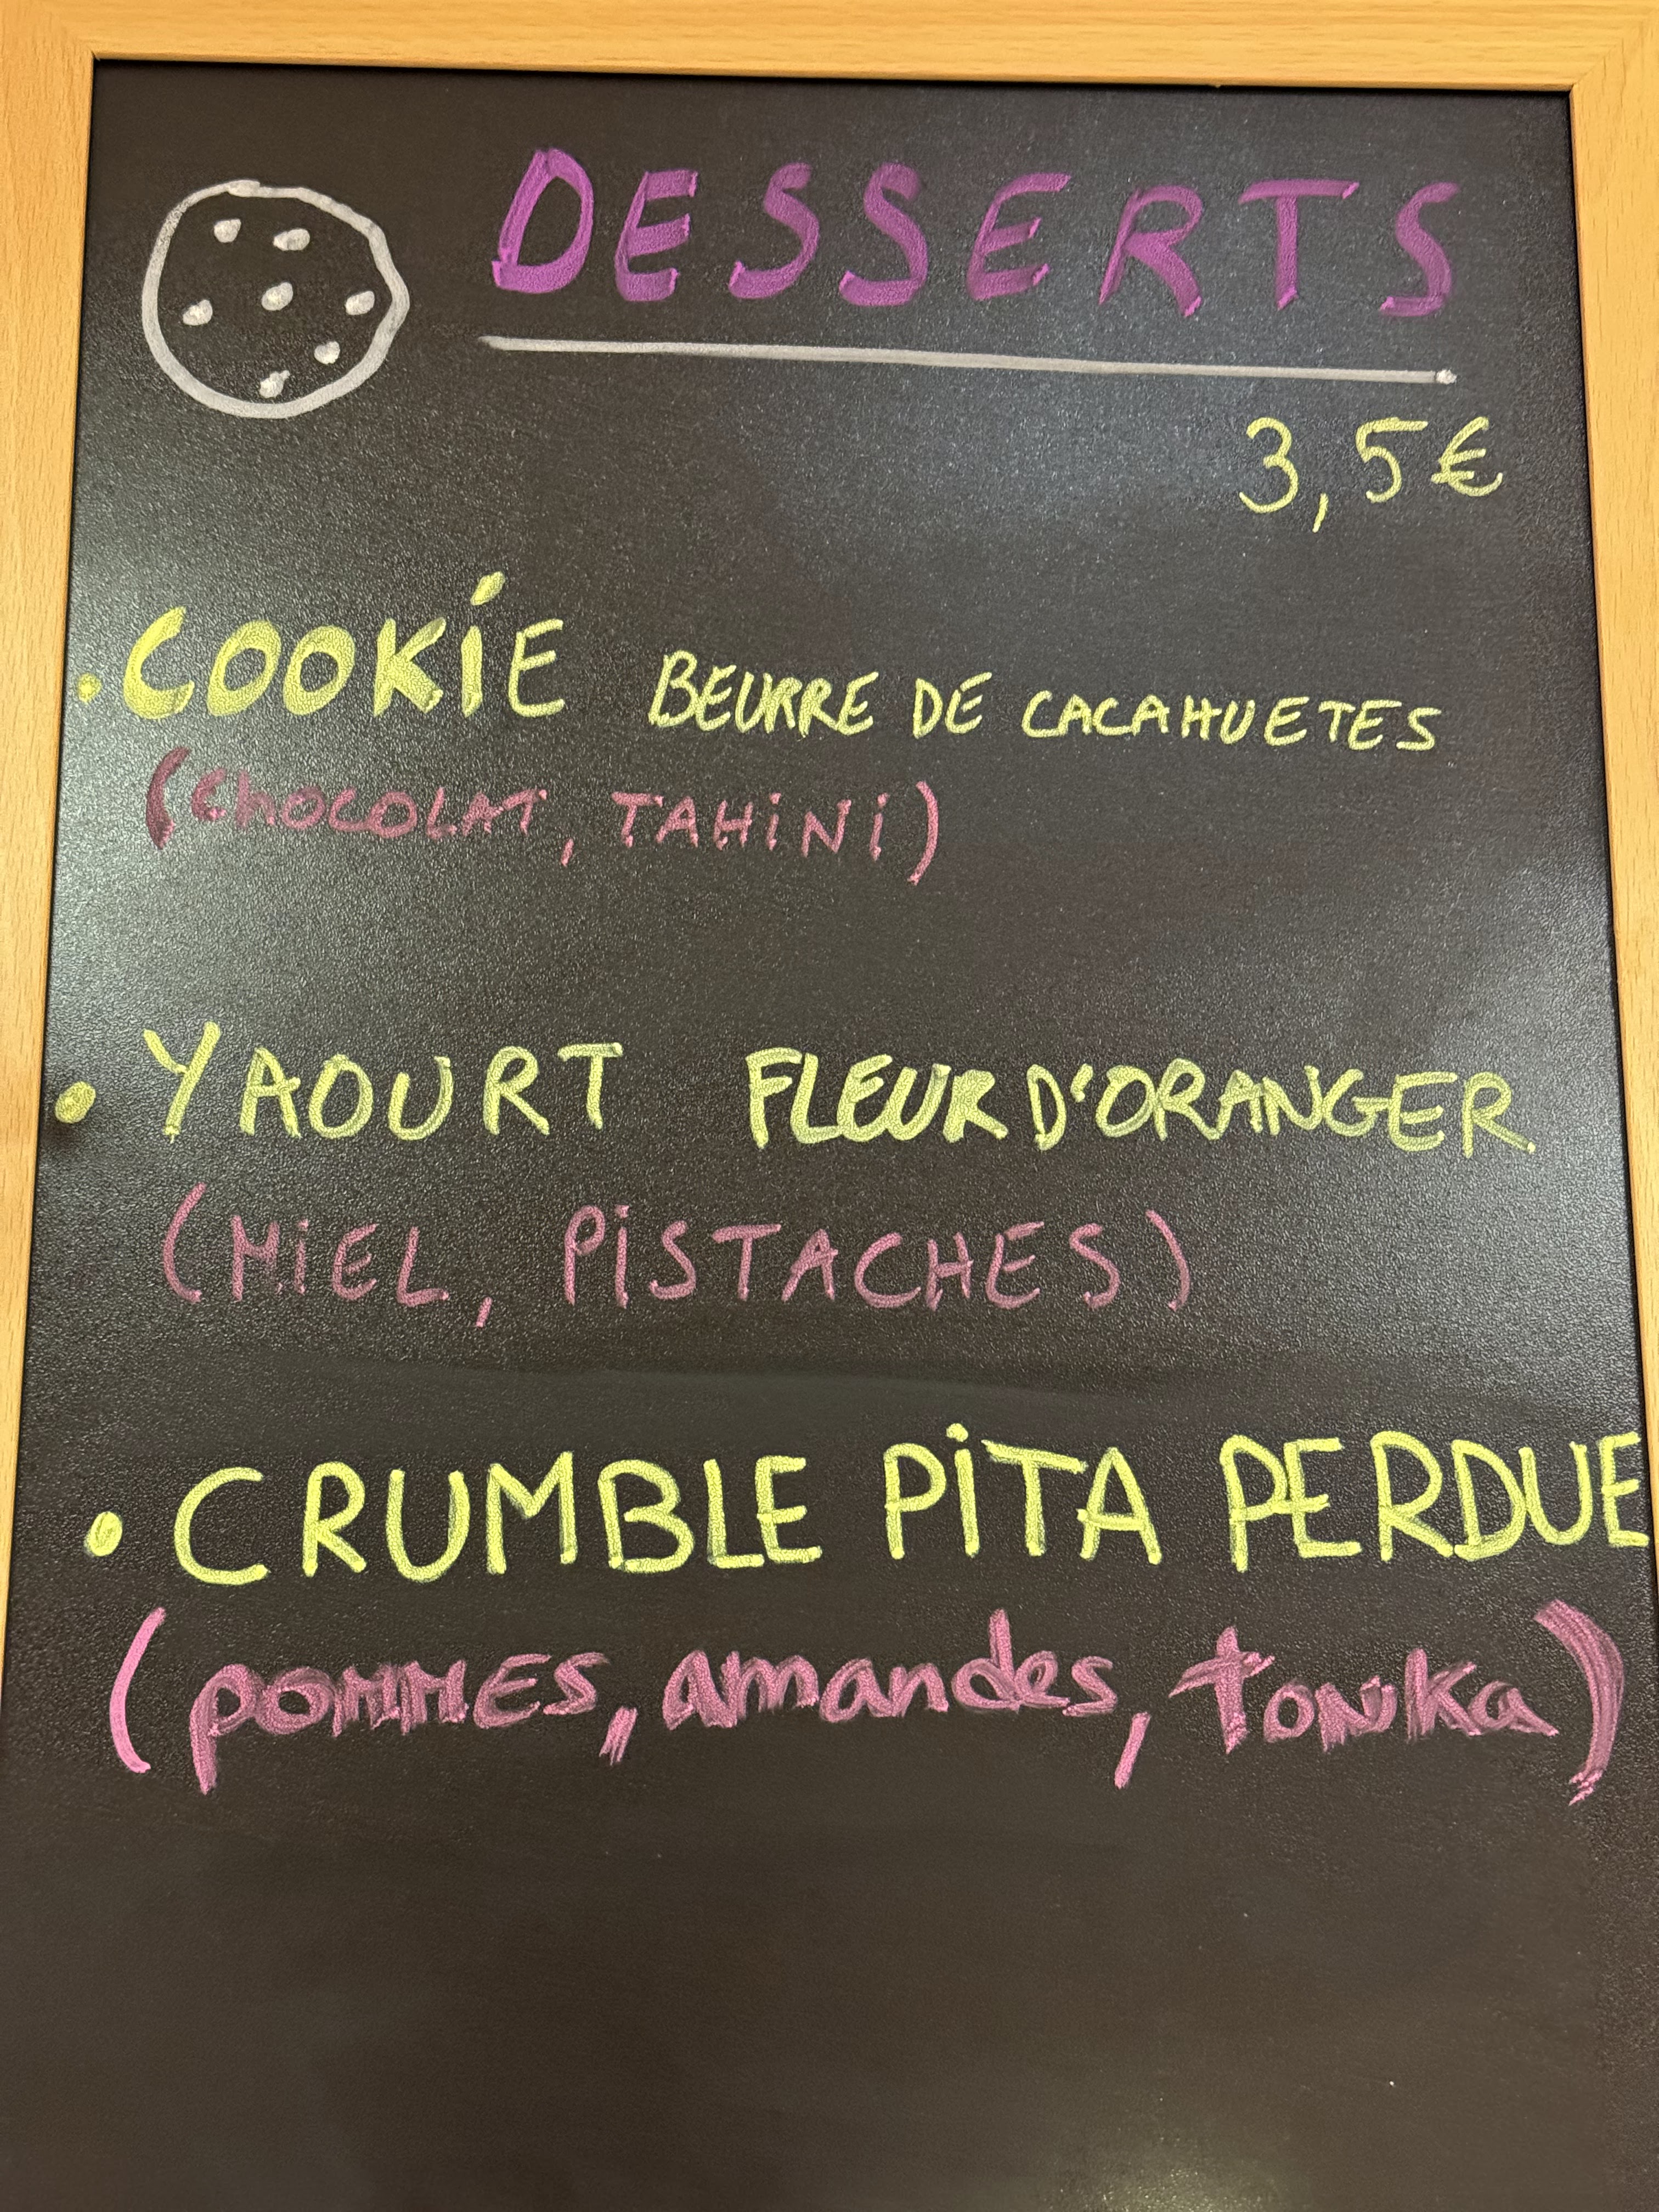 DESSERTS
3,5€
• COOKiE BEURRE DE CACAHUETES
(CHOCOLAT, TAHiNi)
• YAOURT FLEUR D'ORANGER
(MiEL, PiSTACHES)
• CRUMBLE PiTA PERDUE
(POMMES, amandes, tonka)